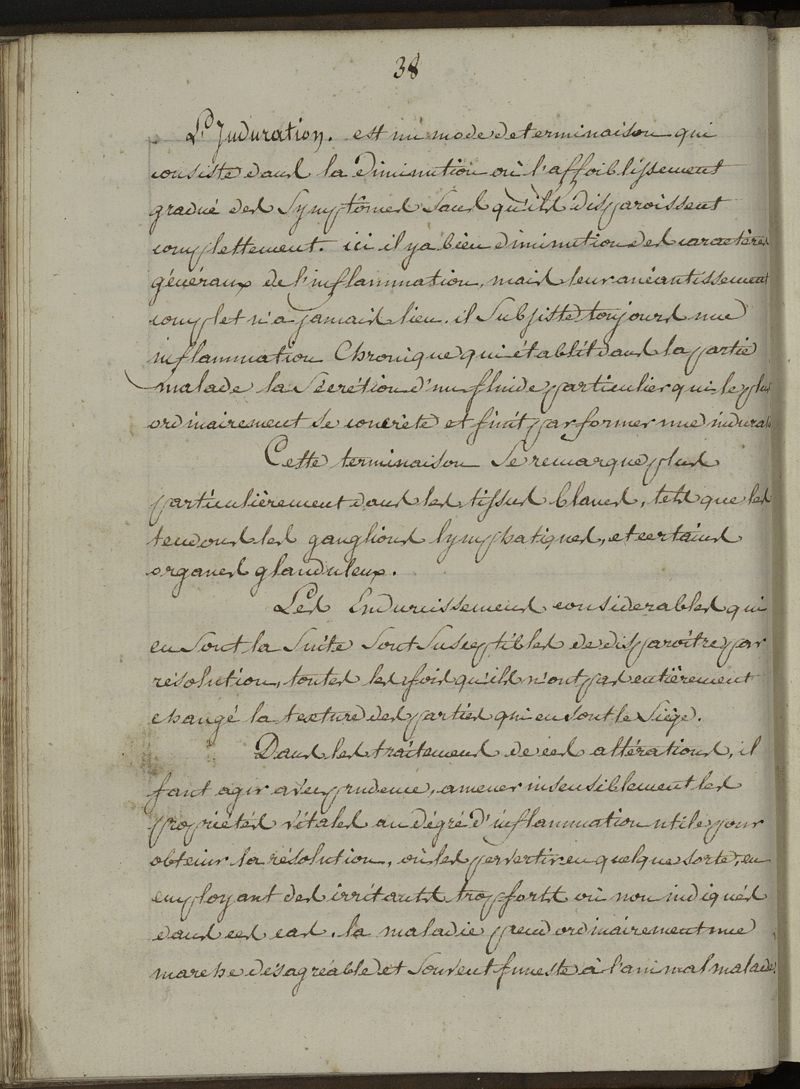 38
L'Induration. est un mode de terminaison qui
consiste dans la diminution ou l'affoiblissement
gradué des Symptômes Sans qu'ils disparoissent
complettement. ici il y a bien diminution des caractères
généraux de l'inflammation, mais leur anéantissement
complet n'a jamais lieu. il Subsiste toujours une
inflammation Chronique qui établit dans la partie
malade la Sécrétion d'un fluide particulier qui le plus
ordinairement se concrète et finit par former une indurat
Cette terminaison Se remarque plus
particulièrement dans les tissus blancs, tels que les
tendons les ganglions lymphatiques, et certains
organes glanduleux.
Les Endurcissemens considerables qui
en Sont la Suite Sont Susceptibles de disparoître par
résolution, toutes les fois qu'ils n'ont pas entièrement
changé la texture des parties qui en sont le Siège.
Dans les traitemens de ces altérations, il
faut agir avec prudence, amener insensiblement les
propriétés vitales au dégré d'inflammation utile pour
obtenir la résolution, où les pervertir en quelque sorte, en
employant des irritants trop forts où non indiqués
dans ces cas. la maladie prend ordinairement une
marche désagréable et Souvent funeste à l'animal malade.